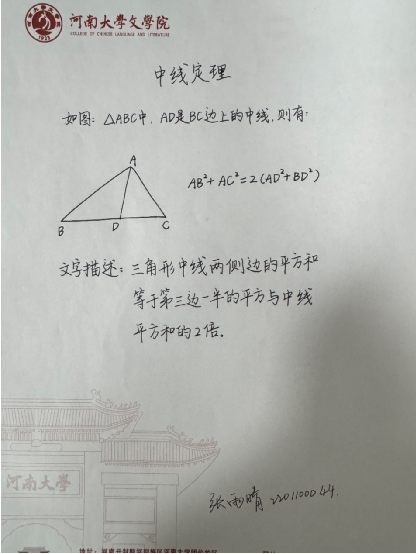 河南大學文學院
COLLEGE OF CHINESE LANGUAGE AND LITERATURE
中线定理
如图: △ABC中, AD是BC边上的中线, 则有:
A
AB²+AC²=2(AD²+BD²)
B D C
文字描述: 三角形中线两侧边的平方和
等于第三边一半的平方与中线
平方和的2倍。
河南大學
张雨晴